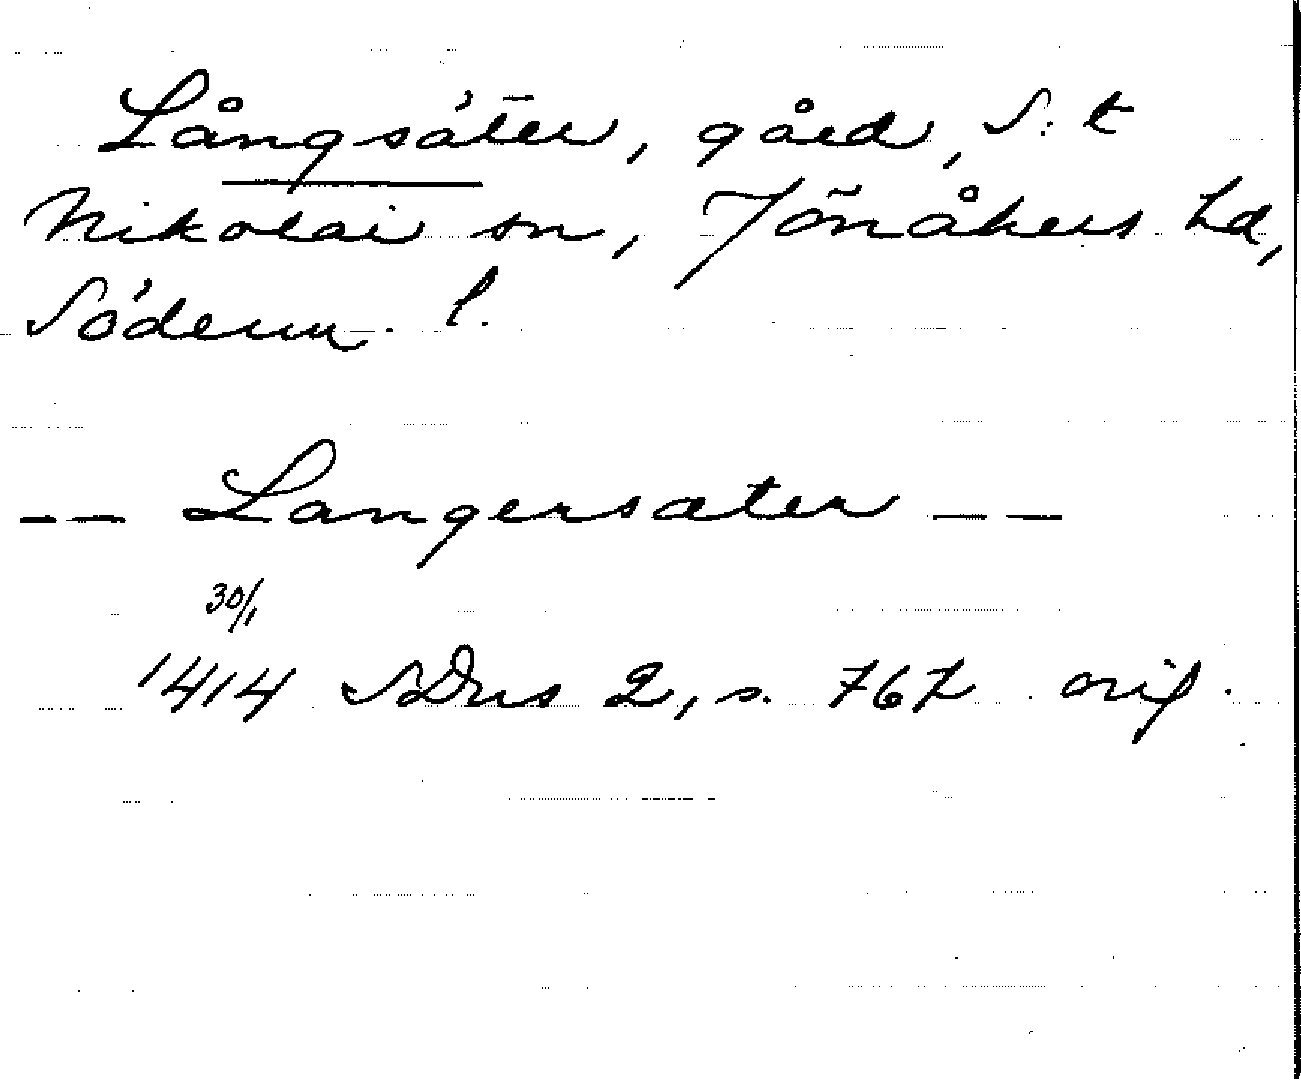 Långsäter, gård, S:t
Nikolai sn, Jönåkers hd,
Söderm. l.
-- Langersæter --
30/1
1414 SDns 2, s. 767 orig.